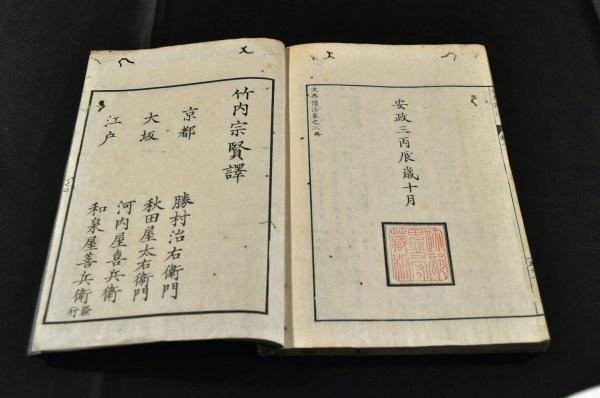 安政三丙辰歳十月
竹内宗賢譯
京都 勝村治右衛門
大坂 秋田屋太右衛門
河内屋喜兵衛
江戸 和泉屋善兵衛
發行